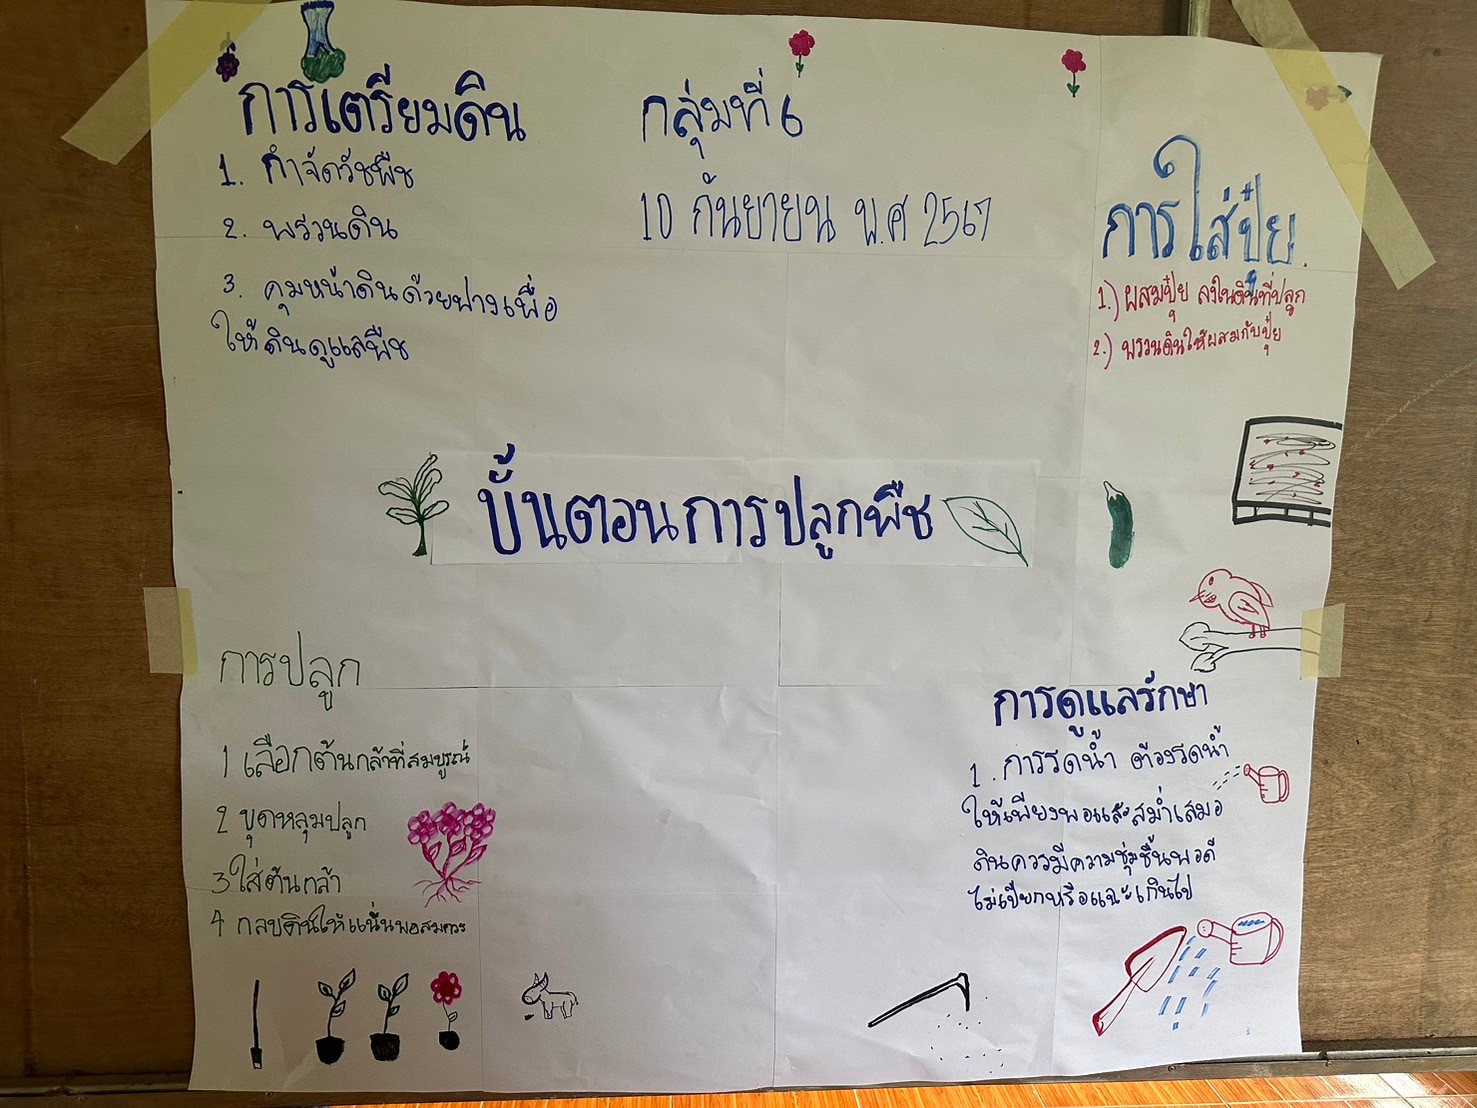 การเตรียมดิน
1. กำจัดวัชพืช
2. พรวนดิน
3. คุมหน้าดินด้วยฟางเพื่อ
ให้ดินดูแลพืช
กลุ่มที่ 6
10 กันยายน พ.ศ 2567
การใส่ปุ๋ย.
1.) ผสมปุ๋ย ลงในดินที่ปลูก
2.) พรวนดินให้ผสมกับปุ๋ย
ขั้นตอนการปลูกพืช
การปลูก
1 เลือกต้นกล้าที่สมบูรณ์
2 ขุดหลุมปลูก
3 ใส่ต้นกล้า
4 กลบดินให้แน่นพอสมควร
การดูแลรักษา
1. การรดน้ำ ต้องรดน้ำ
ให้เพียงพอและสม่ำเสมอ
ดินควรมีความชุ่มชื้นพอดี
ไม่เปียกหรือแฉะเกินไป